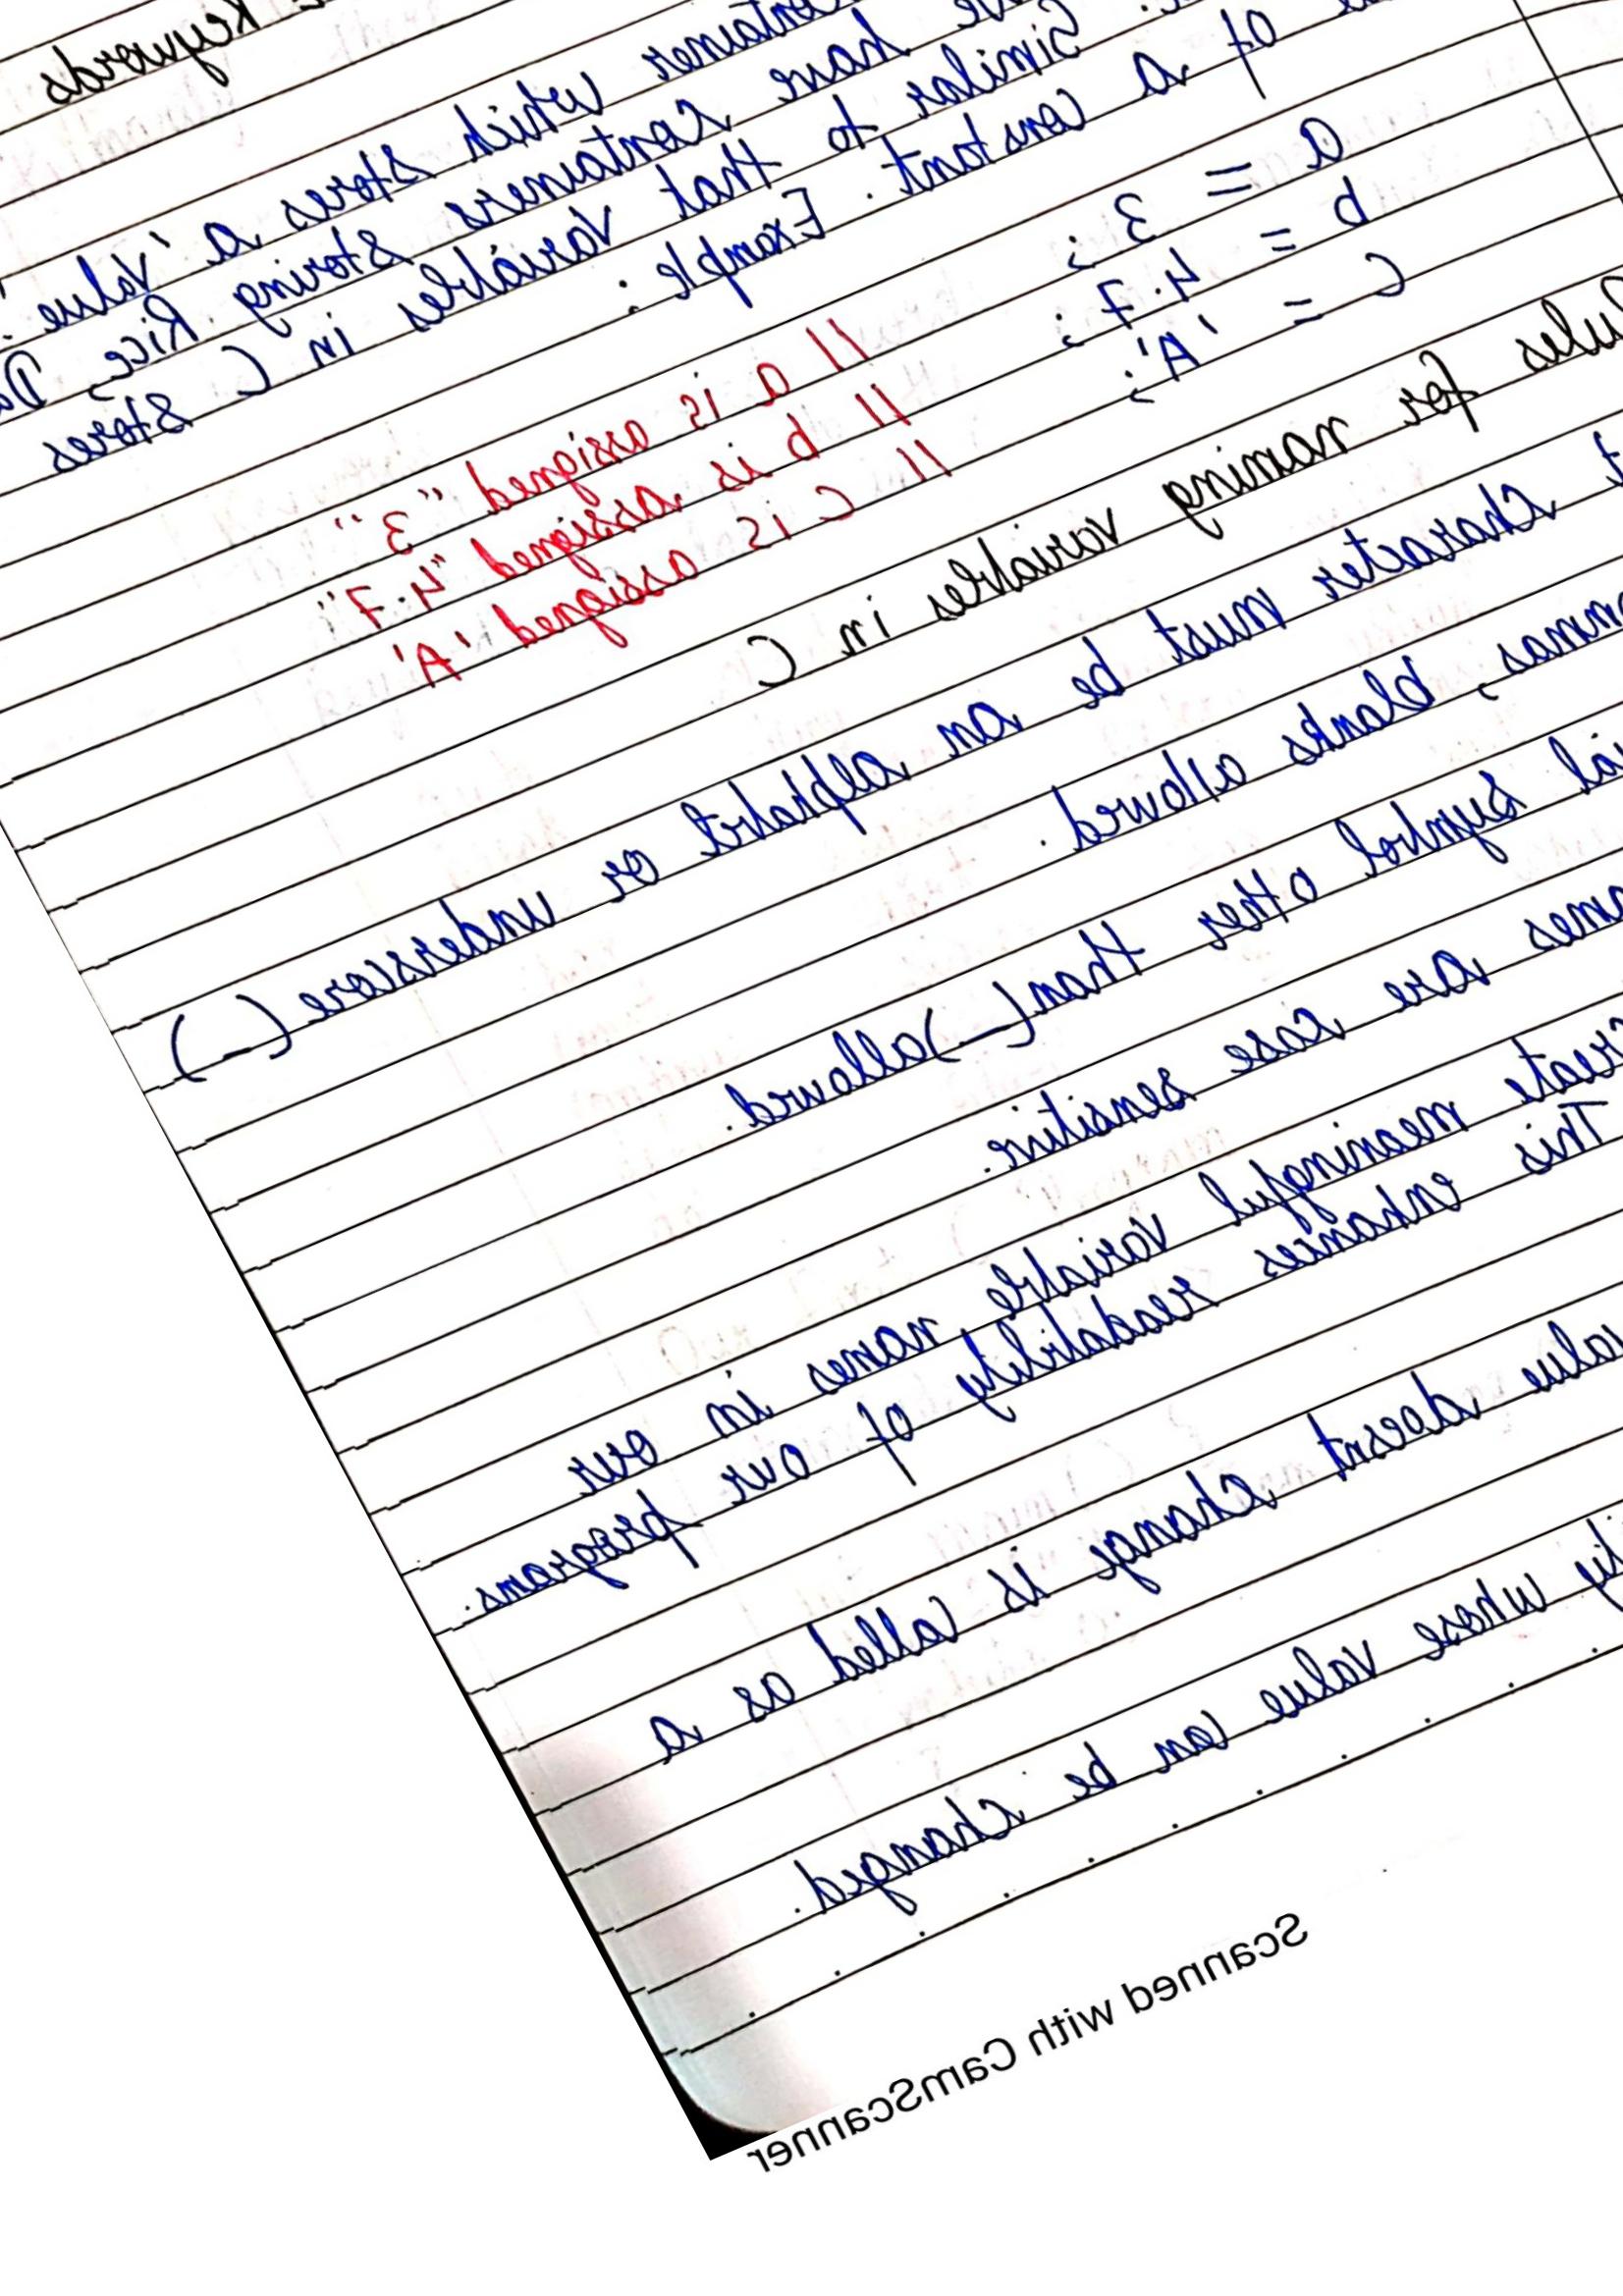 Keywords
ntainer which stores a 'Value'
have Containers Storing Rice,
Similar to that Variables in C Stores
of a constant. Example :
a = 3 ; // a is assigned "3"
b = 4.7 ; // b is assigned "4.7"
C = 'A'; // C is assigned 'A'
ules for naming variables in C
t Character must be an alphabet or underscore (_)
mmas, blanks allowed.
ial Symbol other than (_) allowed.
mes are case sensitive.
reate meaningful variable names in our
This enhances readability of our programs.
value doesnt change is called as a
ty whose value can be changed.
Scanned with CamScanner